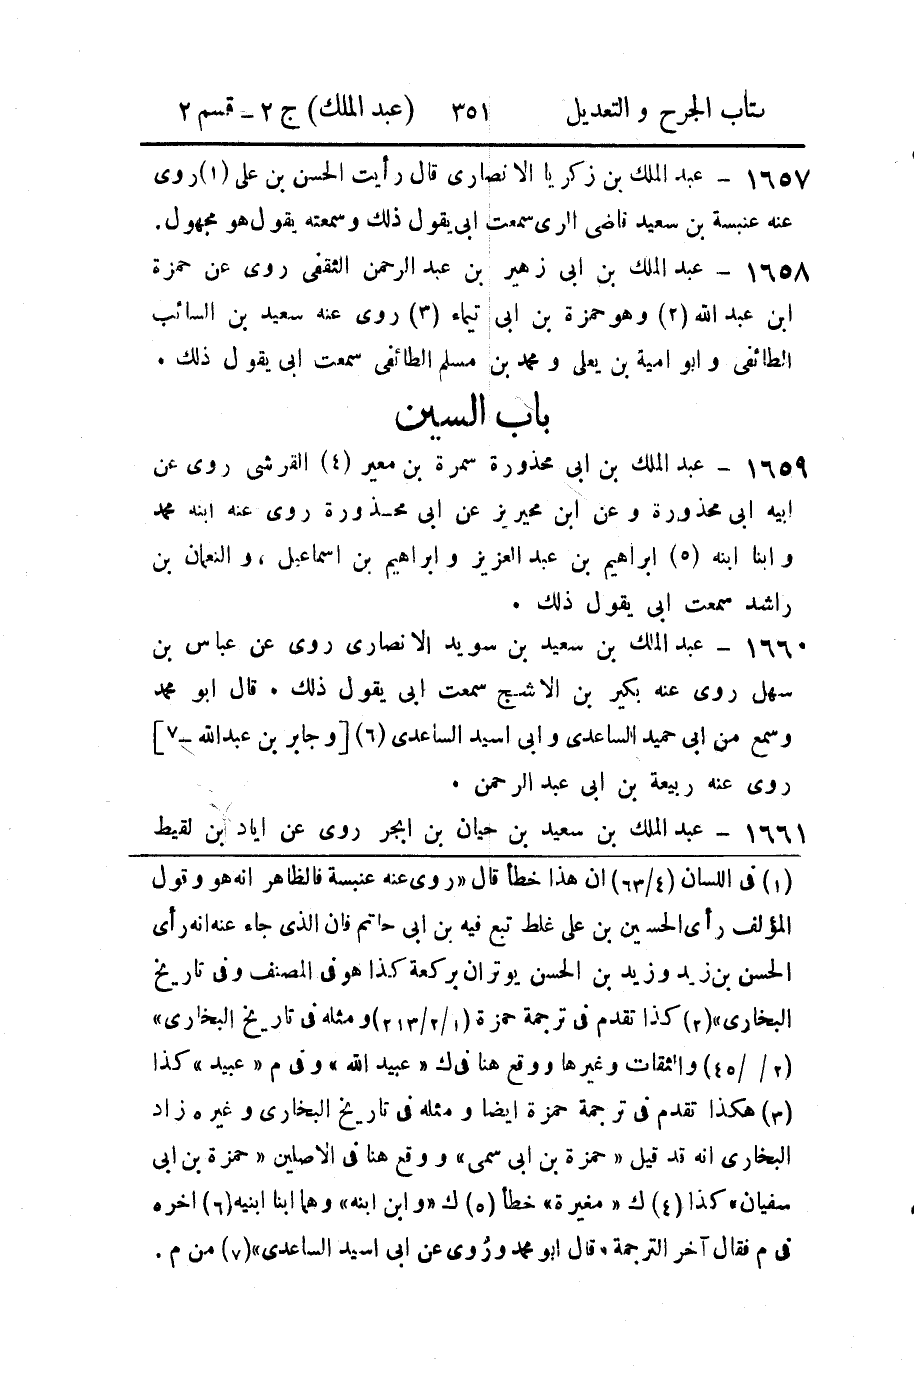 ﺘﺎب الجرح و التعديل ٣٥١ (عبد الملك) ج ٢ - قسم ٢
١٦٥٧ - عبد الملك بن زكريا الانصارى قال رأيت الحسن بن على (١) روى
عنه عنبسة بن سعيد قاضى الرى سمعت ابى يقول ذلك وسمعته يقول هو مجهول.
١٦٥٨ - عبد الملك بن ابى زهير بن عبد الرحمن الثقفى روى عن حمزة
ابن عبد الله (٢) وهو حمزة بن ابى تيماء (٣) روى عنه سعيد بن السائب
الطائفى و ابو امية بن يعلى و محمد بن مسلم الطائفى سمعت ابى يقول ذلك .
باب السين
١٦٥٩ - عبد الملك بن ابى محذورة سمرة بن معير (٤) القرشى روى عن
ابيه ابى محذورة و عن ابن محيريز عن ابى محذورة روى عنه ابنه محمد
و ابنا ابنه (٥) ابراهيم بن عبد العزيز و ابراهيم بن اسماعيل ، و النعمان بن
راشد سمعت ابى يقول ذلك .
١٦٦٠ - عبد الملك بن سعيد بن سويد الانصارى روى عن عباس بن
سهل روى عنه بكير بن الاشج سمعت ابى يقول ذلك . قال ابو محمد
وسمع من ابى حميد الساعدى و ابى اسيد الساعدى (٦) [وجابر بن عبدالله -٧]
روى عنه ربيعة بن ابى عبد الرحمن .
١٦٦١ - عبد الملك بن سعيد بن حيان بن ابجر روى عن اياد بن لقيط
(١) فى اللسان (٦٣/٤) ان هذا خطأ قال «روى عنه عنبسة فالظاهر انه هو وقول
المؤلف رأى الحسين بن على غلط تبع فيه بن ابى حاتم فان الذى جاء عنه انه رأى
الحسن بن زيد وزيد بن الحسن يوتران بركعة كذا هو فى المصنف وفى تاريخ
البخارى» (٢) كذا تقدم فى ترجمة حمزة (٢١٣/٢/١) و مثله فى تاريخ البخارى»
(٢/ /٤٥) والثقات وغيرها ووقع هنا فى ك « عبيد الله » و فى م « عبيد » كذا
(٣) هكذا تقدم فى ترجمة حمزة ايضا و مثله فى تاريخ البخارى و غيره زاد
البخارى انه قد قيل « حمزة بن ابى سمى» و وقع هنا فى الاصلين « حمزة بن ابى
سفيان» كذا (٤) ك « مغيرة» خطأ (٥) ك «و ابن ابنه» وهما ابنا ابنيه (٦) اخره
فى م فقال آخر الترجمة «قال ابو محمد ورُوى عن ابى اسيد الساعدى» (٧) من م .